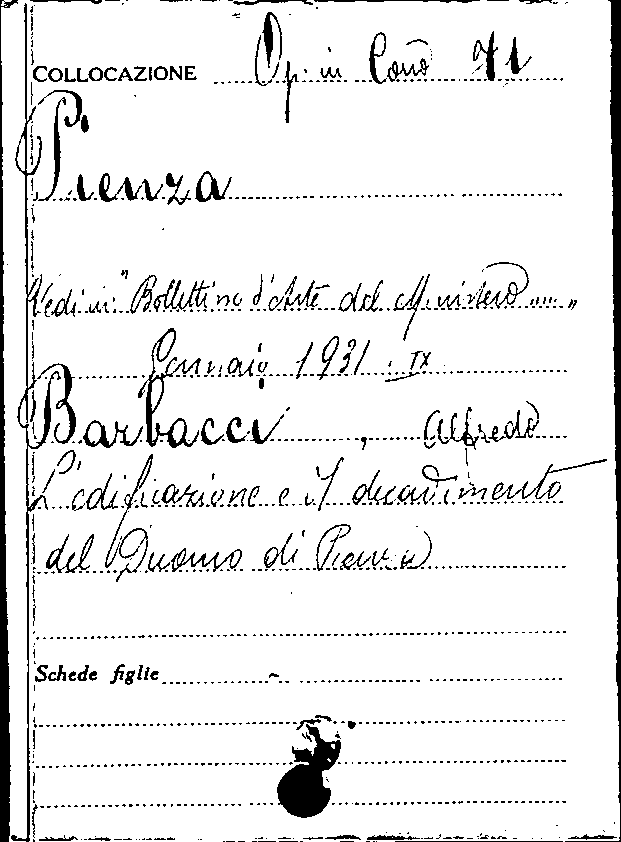 COLLOCAZIONE Op. in Cons 71
Pienza
Vedi in: "Bollettino d'Arte del Ministero ...."
Gennaio 1931. IX
Barbacci, Alfredo
L'edificazione e il decadimento
del Duomo di Pienza
Schede figlie ~